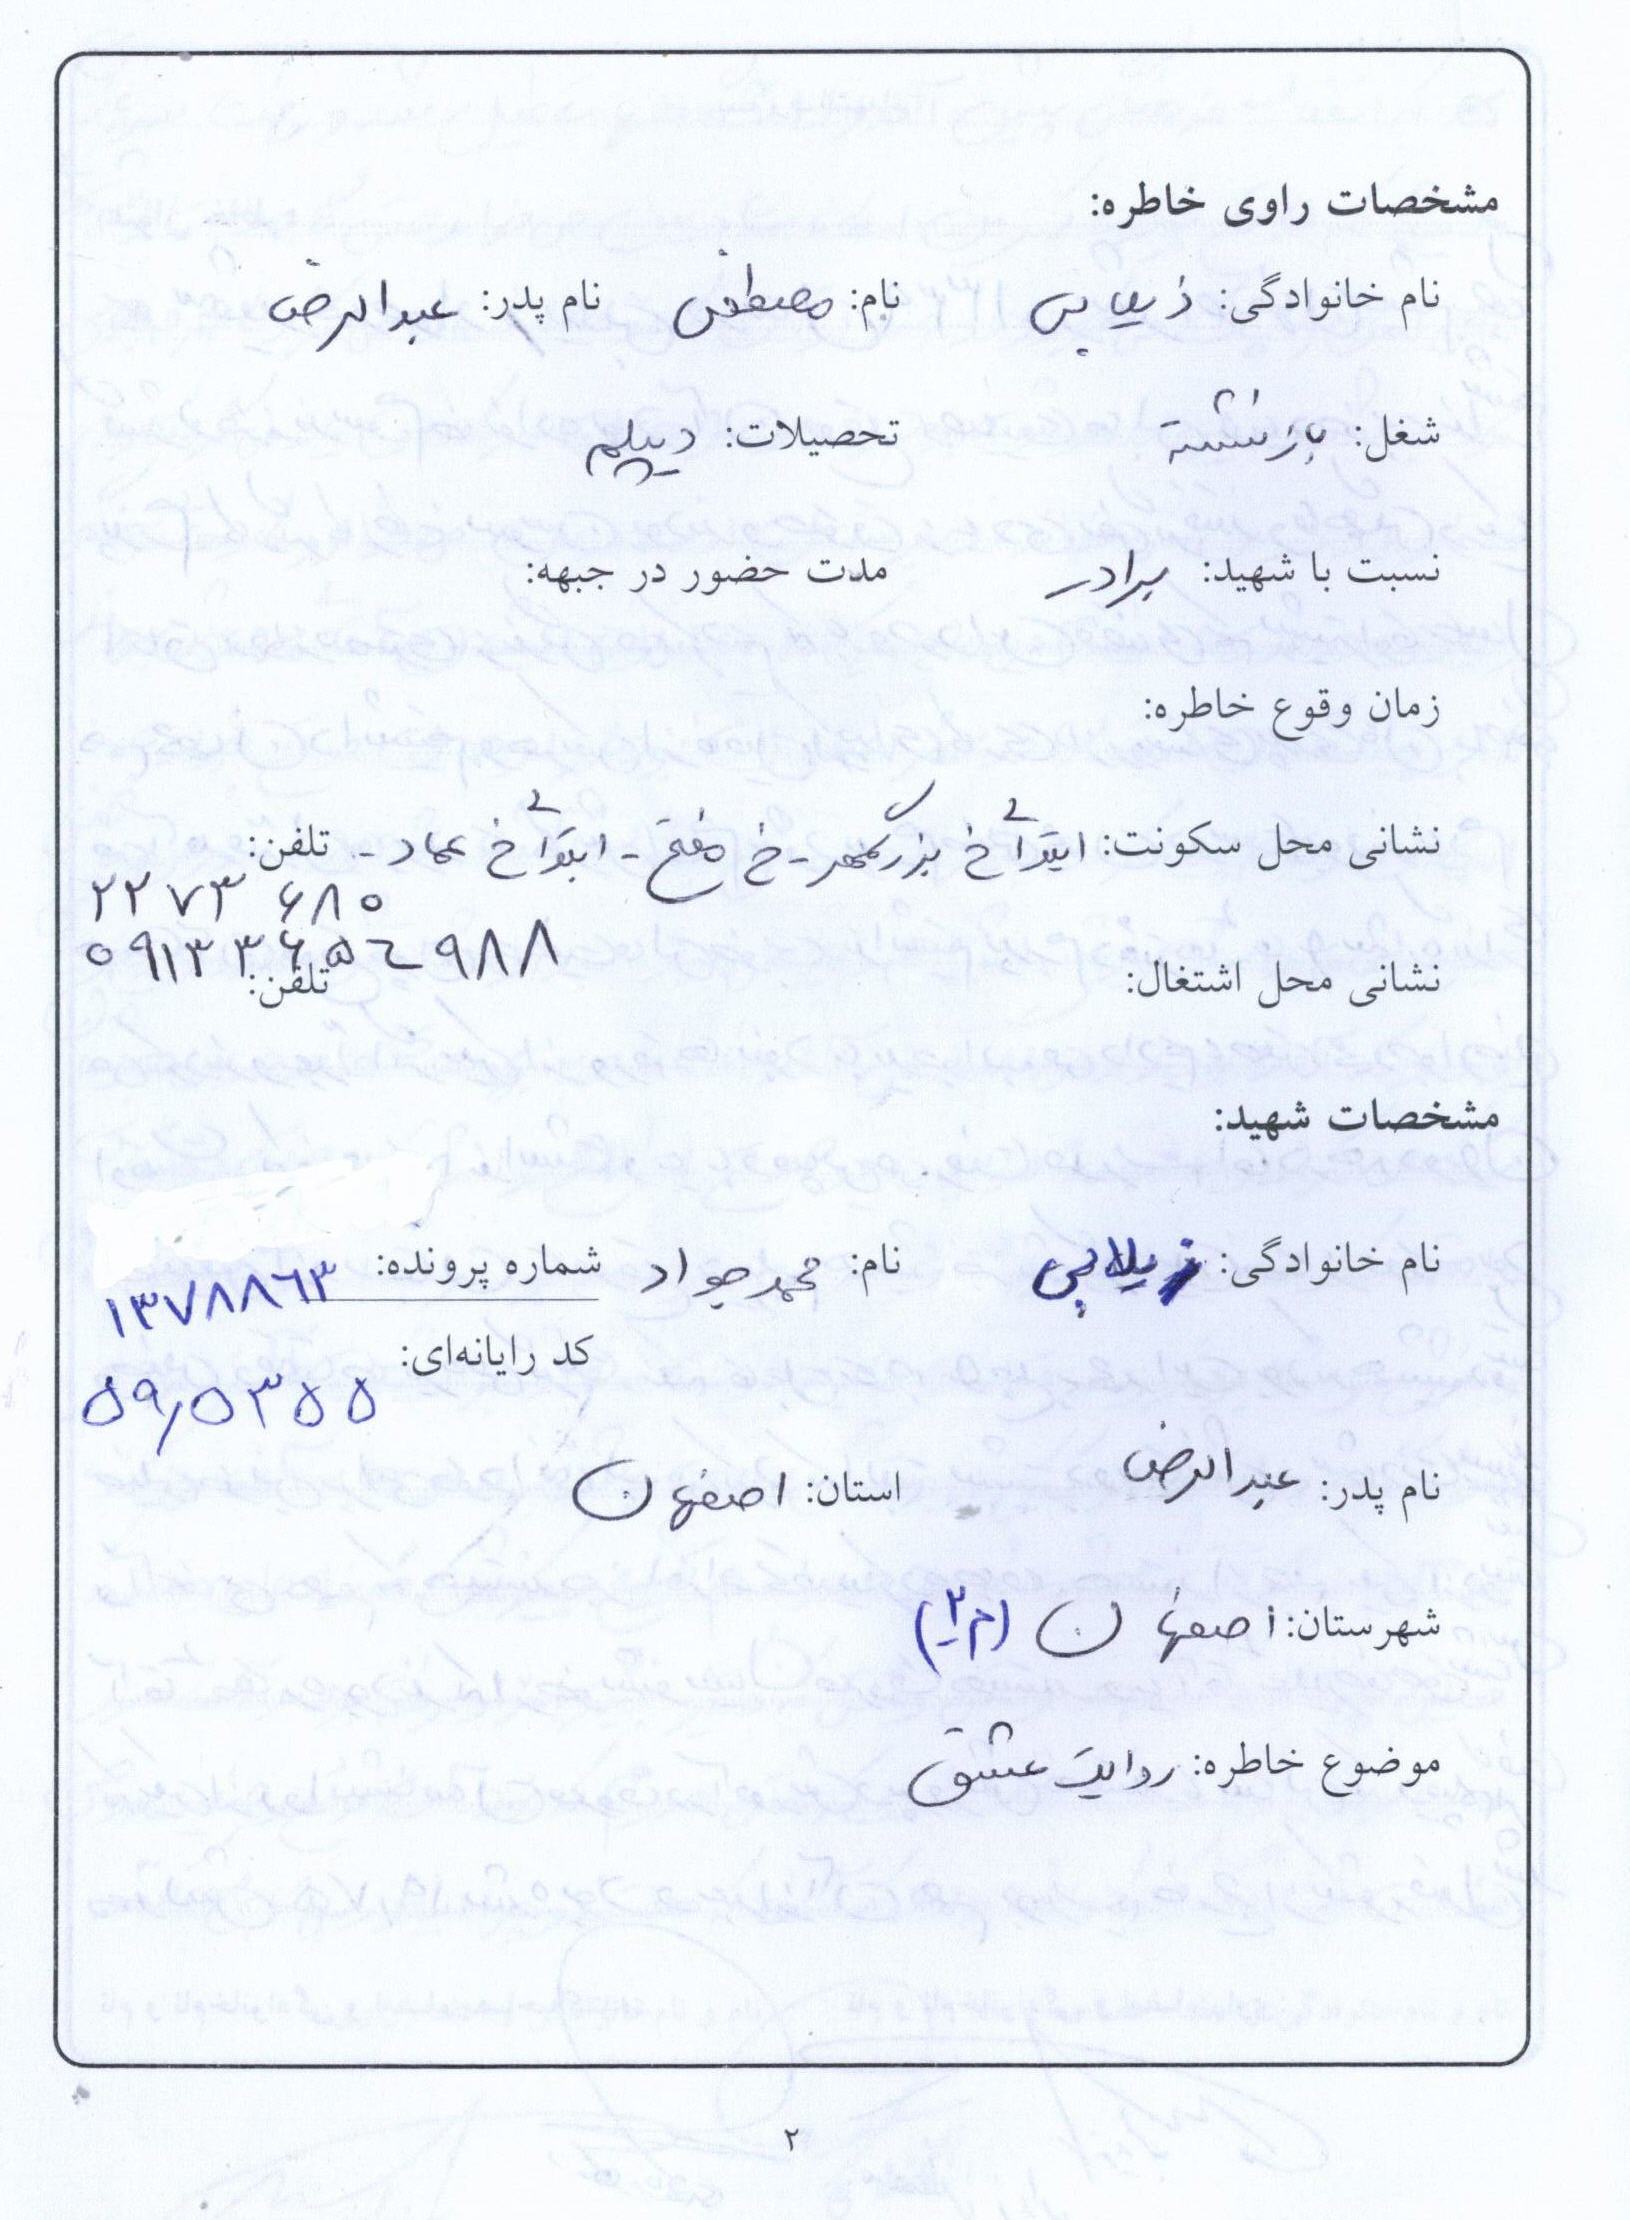 مشخصات راوی خاطره:
نام خانوادگی: نام: مصطفی نام پدر: عبدالرضا
شغل: بازنشسته تحصیلات: دیپلم
نسبت با شهید: برادر مدت حضور در جبهه:
زمان وقوع خاطره:
نشانی محل سکونت: ابتدای خ بزرگمهر - خ مفتح - ابتدای خ عماد - تلفن:
۲۲۷۳۶۸۵
۰۹۱۳۳۶۵۴۹۸۸
نشانی محل اشتغال: تلفن:
مشخصات شهید:
نام خانوادگی: زیلابی نام: محمدجواد شماره پرونده: ۱۳۷۸۸۶۳
کد رایانه‌ای:
نام پدر: عبدالرضا استان: اصفهان
شهرستان: اصفهان (م۲)
موضوع خاطره: روایت عشق
۲